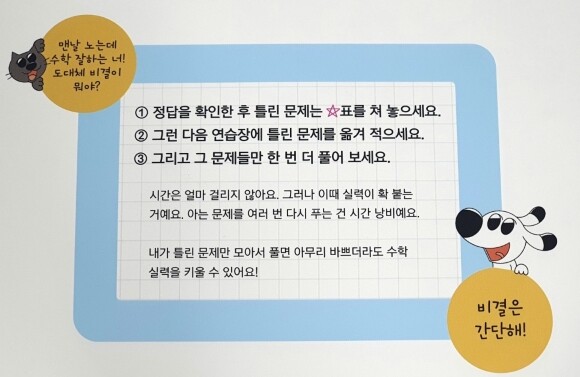 맨날 노는데
수학 잘하는 너!
도대체 비결이
뭐야?
① 정답을 확인한 후 틀린 문제는 ☆표를 쳐 놓으세요.
② 그런 다음 연습장에 틀린 문제를 옮겨 적으세요.
③ 그리고 그 문제들만 한 번 더 풀어 보세요.
시간은 얼마 걸리지 않아요. 그러나 이때 실력이 확 붙는
거예요. 아는 문제를 여러 번 다시 푸는 건 시간 낭비예요.
내가 틀린 문제만 모아서 풀면 아무리 바쁘더라도 수학
실력을 키울 수 있어요!
비결은
간단해!